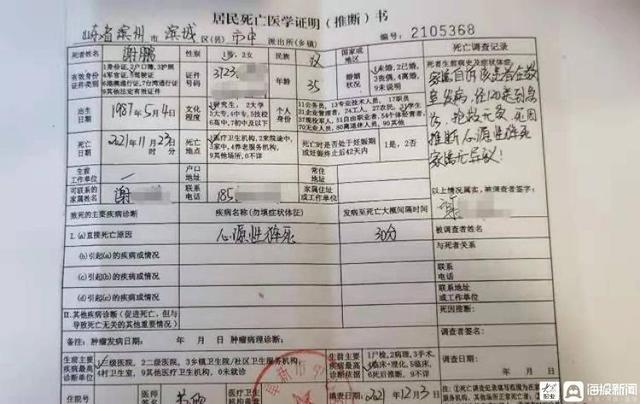 居民死亡医学证明（推断）书
山东省 滨州 滨城 区(县) 市中 派出所(乡镇) No.2105368
死者姓名 谢鹏 性别 1男，2女 国家或地区 民族 汉 死亡调查记录
有效身份证件类别 1身份证，2户口簿，3护照 4军官证，5驾驶证 6港澳通行证，7台湾通行证 9其他法定有效证件
证件号码 3723 年龄 35 婚姻状况 1未婚，2已婚，3丧偶，4离婚，9未说明
死者生前病史及症状体征：
家属自诉该患者在教室发病，经120送到急诊，抢救无效，死因推断心源性猝死 家属无异议！
出生日期 1987年5月4日 文化程度 1研究生，2大学 3大专，4中专，5技校 6高中，7初中及以下
个人身份 11公务员，13专业技术人员，17职员
70无业人员，80离退休人员，90其他
死亡日期 2021年11月23日 时 分
死亡地点 1医疗卫生机构，2来院途中，3家中，4养老服务机构，9其他场所，0不详
死亡时是否处于妊娠期或妊娠终止后42天内 1是，2否
生前工作单位 户口地址
可联系的家属姓名 谢 联系电话 185 家属住址或工作单位
以上情况属实，被调查者签字：
谢
致死的主要疾病诊断 疾病名称(勿填症状体征) 发病至死亡大概间隔时间
I.(a)直接死亡原因 心源性猝死 30分
被调查者姓名
(b)引起(a)的疾病或情况 与死者关系
(c)引起(b)的疾病或情况 联系电话
(d)引起(c)的疾病或情况 联系地址或工作单位
II.其他疾病诊断(促进死亡，但与导致死亡无关的其他重要情况)
死因推断
备注：肿瘤发病日期： 年 月 日 肿瘤病理诊断：
生前主要疾病最高诊断单位 1三级医院，2二级医院，3乡镇卫生院/社区卫生服务机构，4村卫生室，9其他医疗卫生机构，0未就诊
生前主要疾病最高诊断依据 1尸检，2病理，3手术，4临床+理化，5临床，6死后推断，9不详
住院号 医师 民警 填表日期 2021年12月3日
大众职业
海报新闻